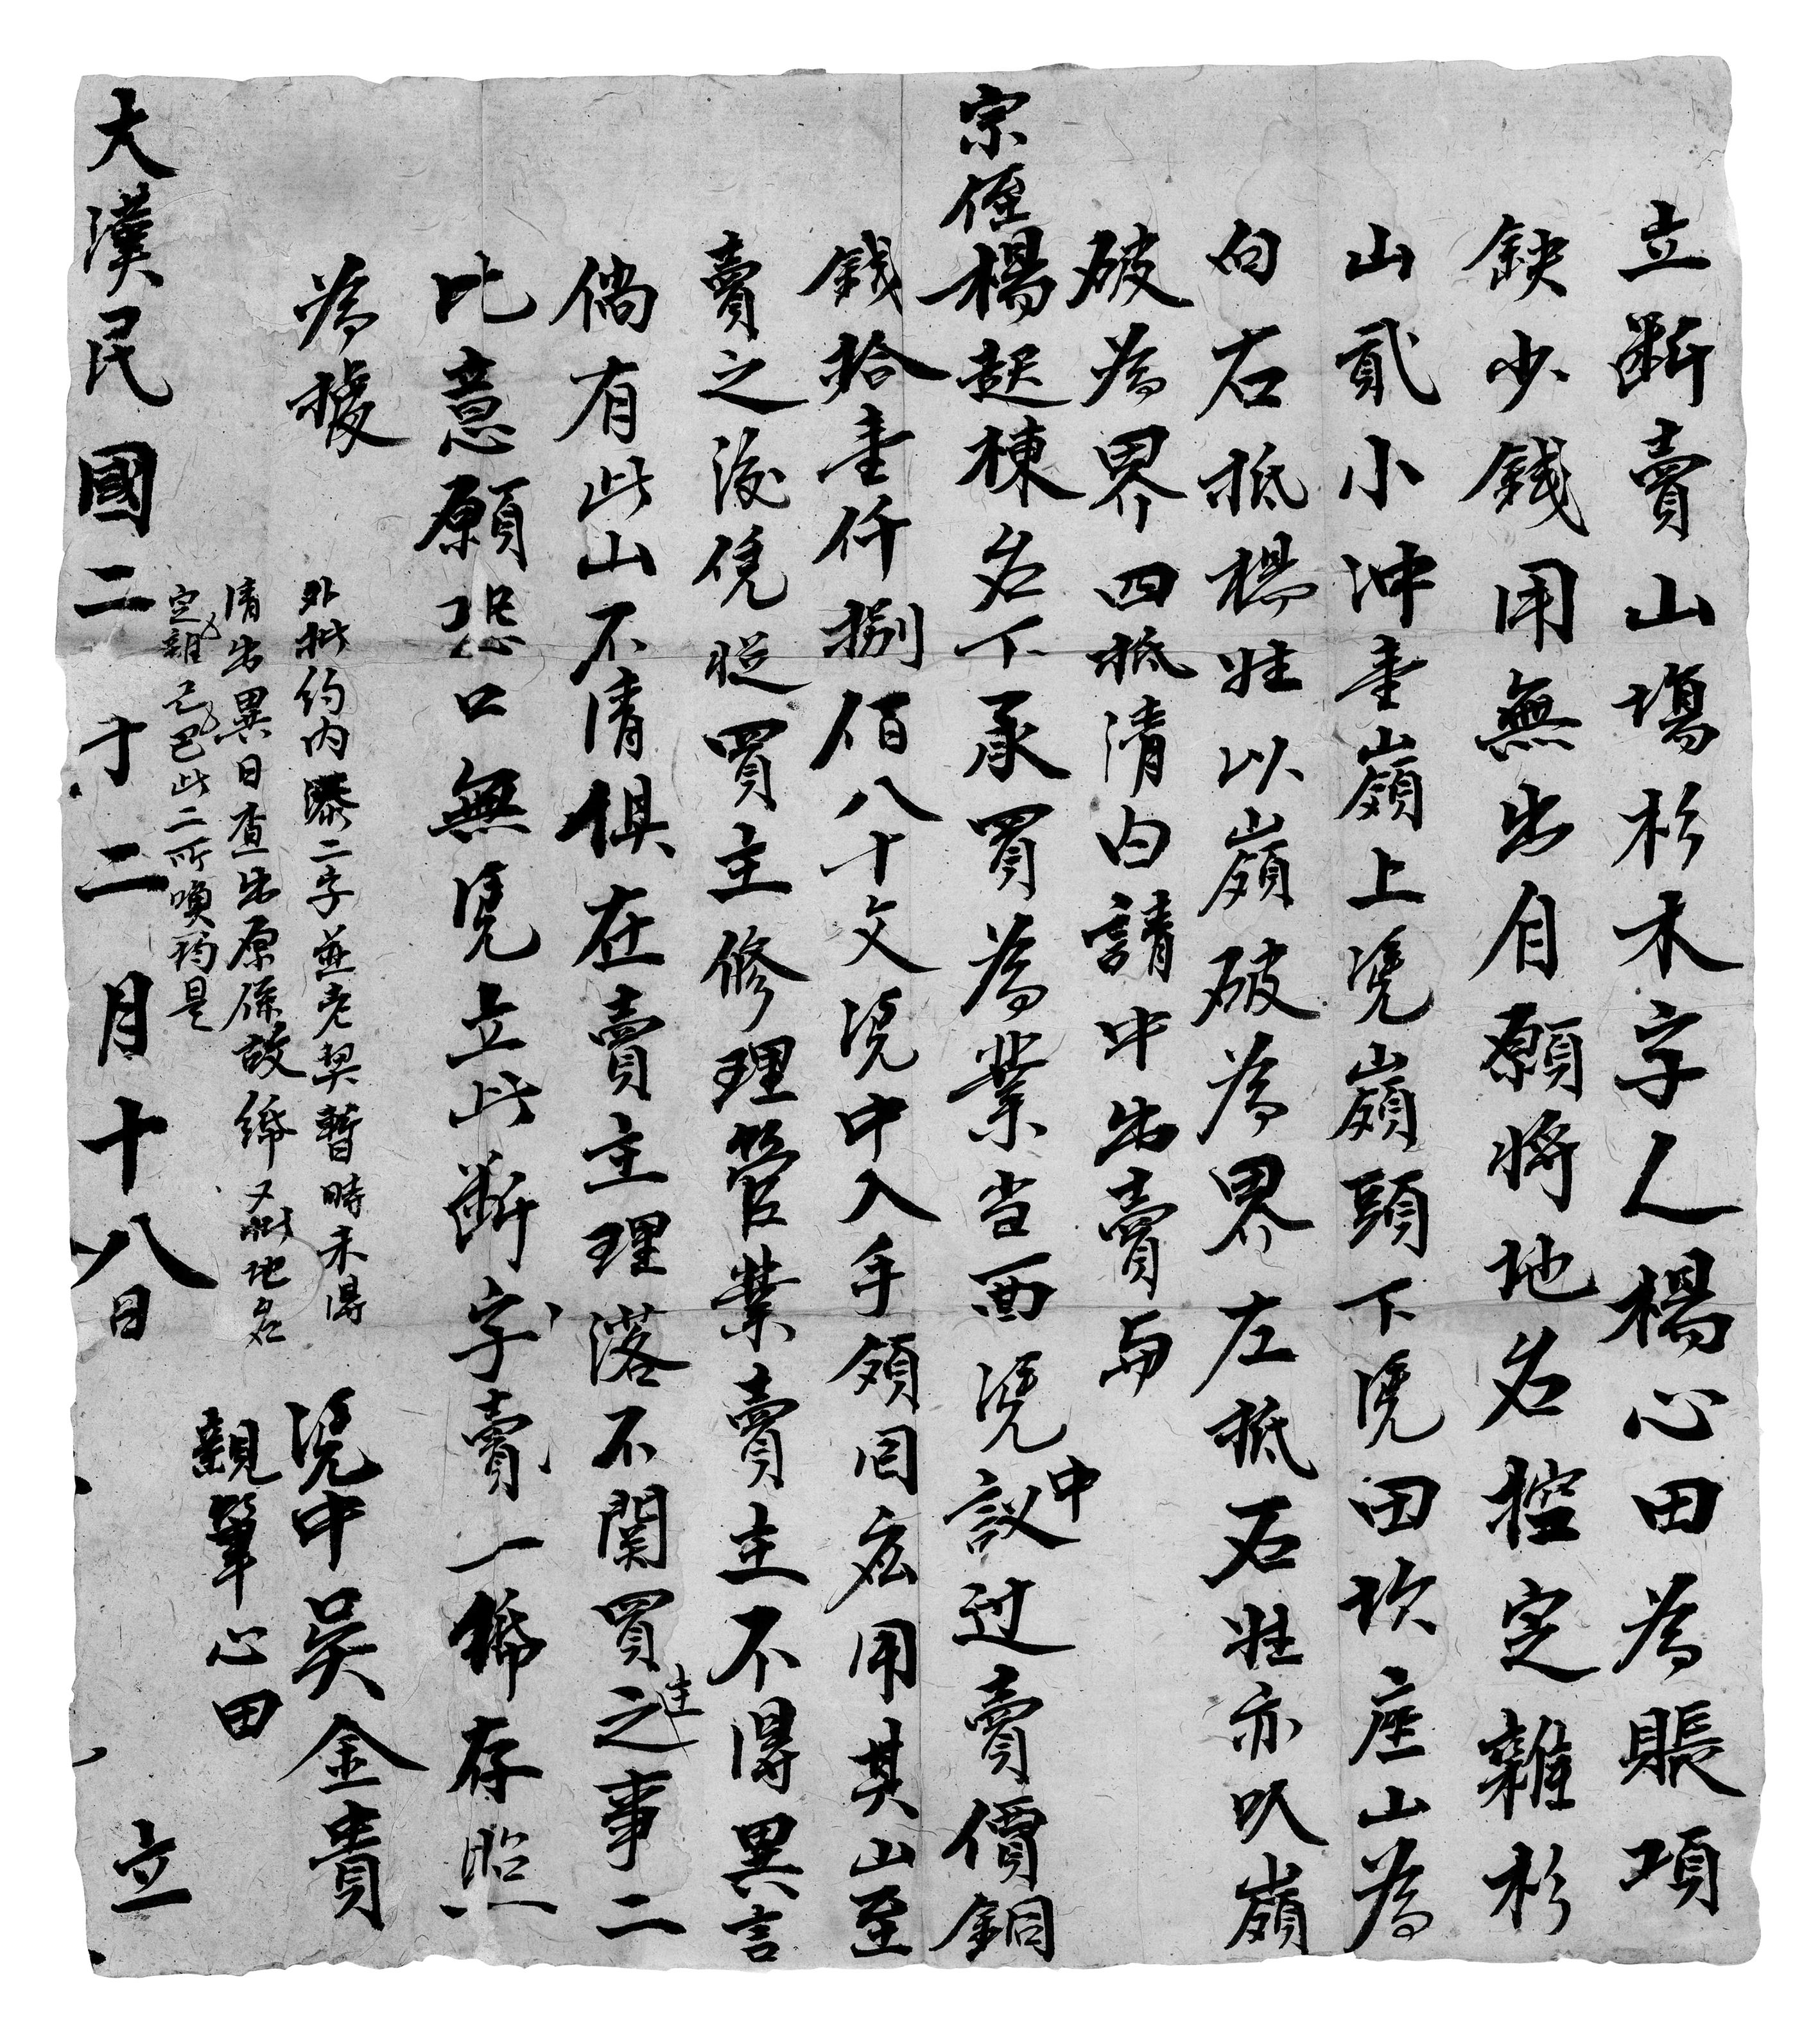 立斷賣山塲杉木字人楊心田為賬項
缺少錢用無出自願将地名控定雜杉
山貳小冲壹嶺上凴嶺頭下凴田坎座山為
向右抵楊姓以嶺破為界左抵石姓亦以嶺
破為界四抵清白請中出賣与
宗侄楊起棟名下承買為業当面凴中議过賣價銅
錢拾壹仟捌佰八十文凴中入手領回应用其山至
賣之後凭從買主修理管業賣主不得異言
倘有此山不清俱在賣主理落不関買主之事二
比意願恐口無凴立此斷字賣一𥿄存照
為據
外批約内添二字並老契暫時未得
清出異日查出原係故𥿄又批地名
定雜己巴此二所喚約是
凴中吴金貴
親筆心田
大漢民國二十二月十八日立